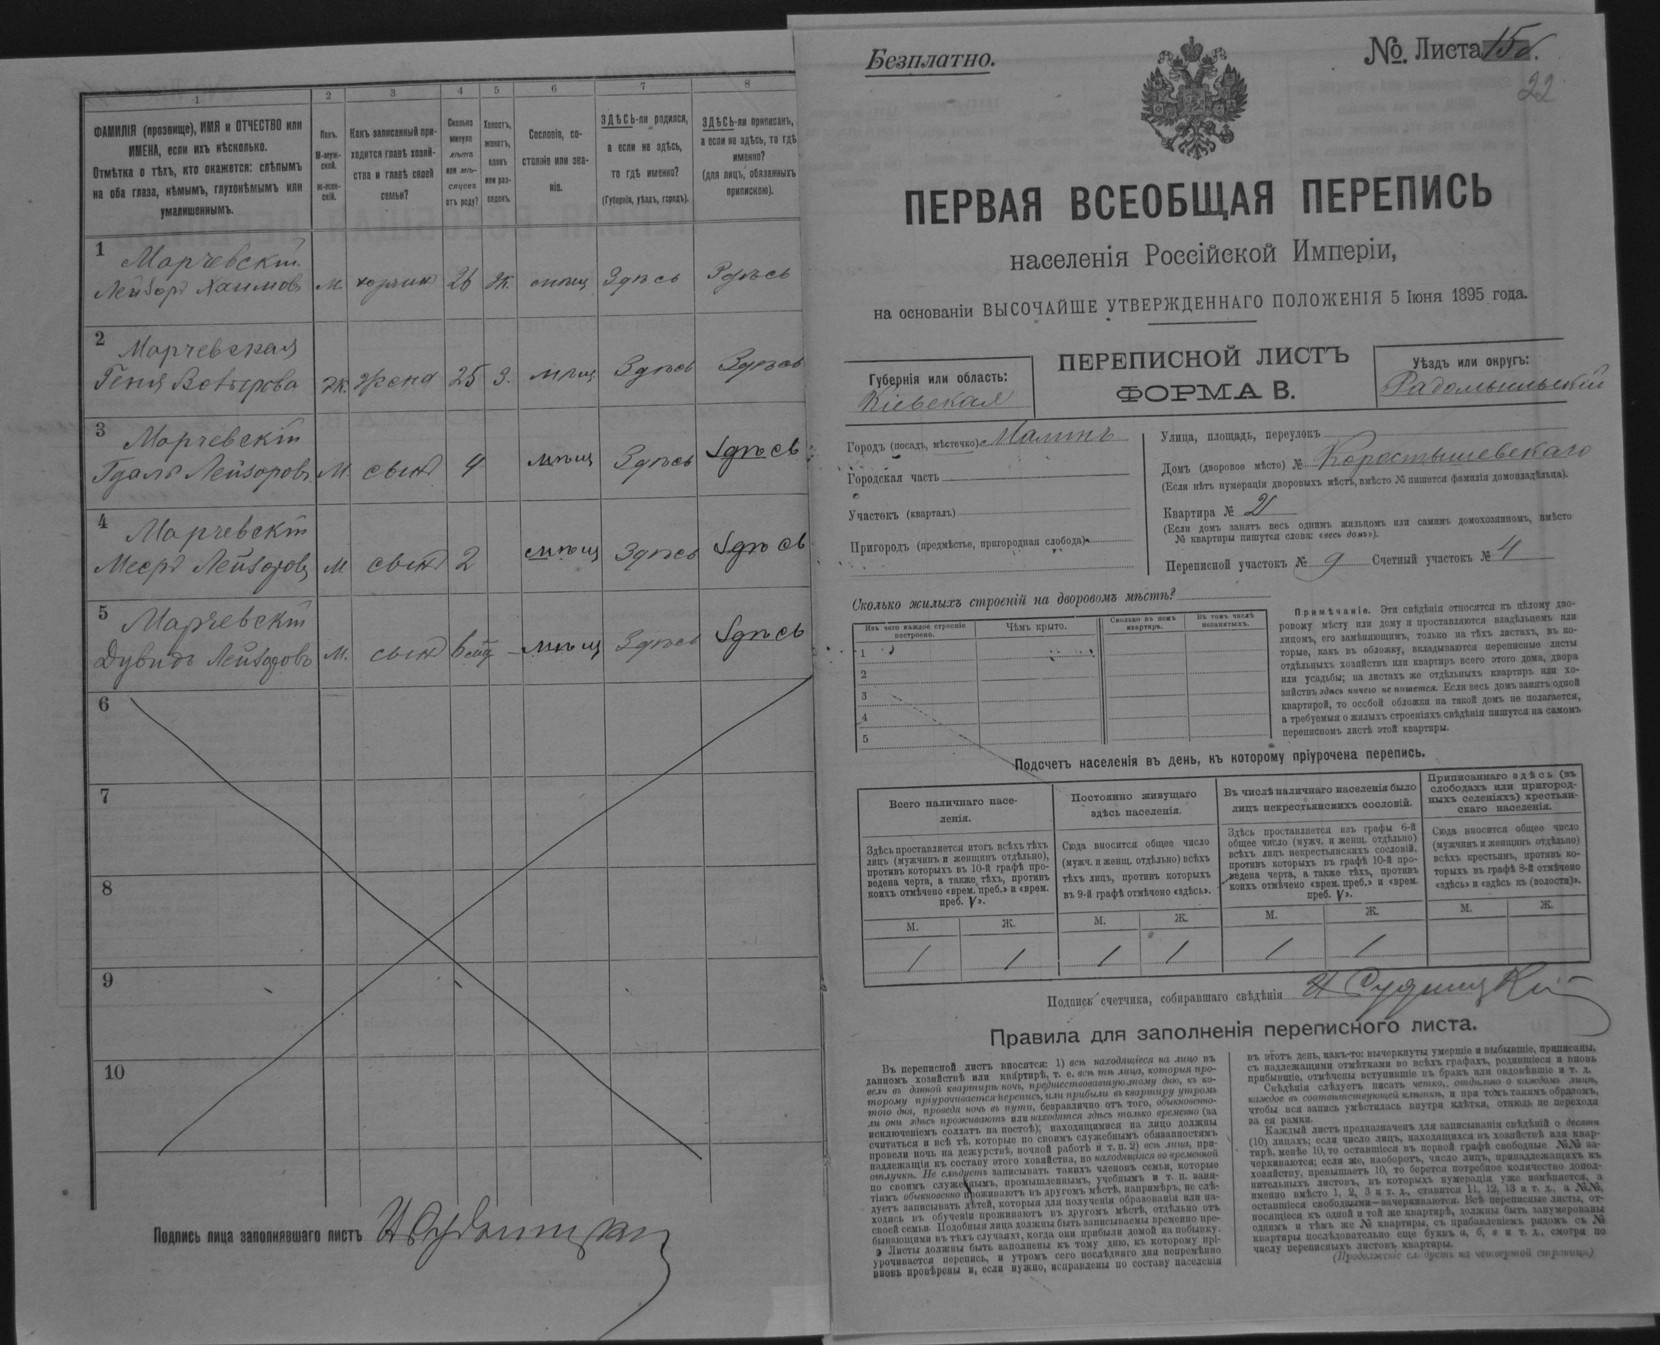 1
2
3
4
5
6
7
8
ФАМИЛІЯ (прозвище), ИМЯ и ОТЧЕСТВО или
ИМЕНА, если ихъ нѣсколько.
Отмѣтка о тѣхъ, кто окажется: слѣпымъ
на оба глаза, нѣмымъ, глухонѣмымъ или
умалишеннымъ.
Полъ.
М-муж-
ской.
ж-жен-
скій.
Какъ записанный при-
ходится главѣ хозяй-
ства и главѣ своей
семьи?
Сколько
минуло
лѣтъ
или мѣ-
сяцевъ
отъ роду?
Холостъ,
женатъ,
вдовъ
или раз-
веденъ.
Сословіе, со-
стояніе или зва-
ніе.
ЗДѢСЬ-ли родился,
а если не здѣсь,
то гдѣ именно?
(Губернія, уѣздъ, городъ).
ЗДѢСЬ-ли приписанъ,
а если не здѣсь, то гдѣ
именно?
(для лицъ, обязанныхъ
припискою).
1
Марчевскій
Лейзоръ Хаимовъ
М. 26 Ж. мѣщ Здѣсь Здѣсь
2
Марчевская
Геня
Ж. жена 25 З. мѣщ Здѣсь Здѣсь
3
Марчевскій
Гдаль Лейзоровъ
М сынъ 4 мѣщ Здѣсь Здѣсь
4
Марчевскій
Мееръ Лейзоровъ
М сынъ 2 мѣщ Здѣсь Здѣсь
5
Марчевскій
Дувидъ Лейзоровъ
М. сынъ мѣщ Здѣсь Здѣсь
6
7
8
9
10
Подпись лица заполнявшаго листъ
Безплатно.
№. Листа 15б.
22
ПЕРВАЯ ВСЕОБЩАЯ ПЕРЕПИСЬ
населенія Россійской Имперіи,
на основаніи ВЫСОЧАЙШЕ УТВЕРЖДЕННАГО ПОЛОЖЕНІЯ 5 Іюня 1895 года.
ПЕРЕПИСНОЙ ЛИСТЪ
ФОРМА В.
Губернія или область:
Кіевская
Уѣздъ или округъ:
Радомысльскій
Городъ (посадъ, мѣстечко) Малинъ
Городская часть
Участокъ (кварталъ)
Пригородъ (предмѣстье, пригородная слобода)
Улица, площадь, переулокъ
Домъ (дворовое мѣсто) № Коростышевскаго
(Если нѣтъ нумераціи дворовыхъ мѣстъ, вмѣсто № пишется фамилія домовладѣльца).
Квартира №
(Если домъ занятъ весь однимъ жильцомъ или самимъ домохозяиномъ, вмѣсто
№ квартиры пишутся слова: «весь домъ»).
Переписной участокъ № 9 Счетный участокъ № 4
Сколько жилыхъ строеній на дворовомъ мѣстѣ?
Изъ чего каждое строеніе
построено.
Чѣмъ крыто.
Сколько въ немъ
квартиръ.
Въ томъ числѣ
незанятыхъ.
1
2
3
4
5
Примѣчаніе. Эти свѣдѣнія относятся къ цѣлому дво-
ровому мѣсту или дому и проставляются владѣльцемъ или
лицомъ, его замѣняющимъ, только на тѣхъ листахъ, въ ко-
торые, какъ въ обложку, вкладываются переписные листы
отдѣльныхъ хозяйствъ или квартиръ всего этого дома, двора
или усадьбы; на листахъ же отдѣльныхъ квартиръ или хо-
зяйствъ здѣсь ничего не пишется. Если весь домъ занятъ одной
квартирой, то особой обложки на такой домъ не полагается,
а требуемыя о жилыхъ строеніяхъ свѣдѣнія пишутся на самомъ
переписномъ листѣ этой квартиры.
Подсчетъ населенія въ день, къ которому пріурочена перепись.
Всего наличнаго насе-
ленія.
Постоянно живущаго
здѣсь населенія.
Въ числѣ наличнаго населенія было
лицъ некрестьянскихъ сословій.
Приписаннаго здѣсь (въ
слободахъ или пригород-
ныхъ селеніяхъ) крестьян-
скаго населенія.
Здѣсь проставляется итогъ всѣхъ тѣхъ
лицъ (мужчинъ и женщинъ отдѣльно),
противъ которыхъ въ 10-й графѣ про-
ведена черта, а также тѣхъ, противъ
коихъ отмѣчено «врем. преб.» и «врем.
преб. V».
Сюда вносится общее число
(мужч. и женщ. отдѣльно) всѣхъ
тѣхъ лицъ, противъ которыхъ
въ 9-й графѣ отмѣчено «здѣсь».
Здѣсь проставляется изъ графы 6-й
общее число (мужч. и женщ. отдѣльно)
всѣхъ лицъ некрестьянскихъ сословій,
противъ которыхъ въ графѣ 10-й про-
ведена черта, а также тѣхъ, противъ
коихъ отмѣчено «врем. преб.» и «врем.
преб. V».
Сюда вносится общее число
(мужчинъ и женщинъ отдѣльно)
всѣхъ крестьянъ, противъ ко-
торыхъ въ графѣ 8-й отмѣчено
«здѣсь» и «здѣсь къ (волости)».
М. Ж. М. Ж. М. Ж. М. Ж.
/ / / / / /
Подпись счетчика, собиравшаго свѣдѣнія
Правила для заполненія переписного листа.
Въ переписной листъ вносятся: 1) всѣ находящіеся на лицо въ
данномъ хозяйствѣ или квартирѣ, т. е. всѣ тѣ лица, которыя про-
вели въ данной квартирѣ ночь, предшествовавшую тому дню, къ ко-
торому пріурочивается перепись, или прибыли въ квартиру утромъ
того дня, проведя ночь въ пути, безразлично отъ того, обыкновенно-
ли они здѣсь проживаютъ или находятся здѣсь только временно (за
исключеніемъ солдатъ на постоѣ); находящимися на лицо должны
считаться и всѣ тѣ, которые по своимъ служебнымъ обязанностямъ
провели ночь на дежурствѣ, ночной работѣ и т. п. 2) всѣ лица, при-
надлежащія къ составу этого хозяйства, но находящіяся во временной
отлучкѣ. Не слѣдуетъ записывать такихъ членовъ семьи, которые
по своимъ служебнымъ, промышленнымъ, учебнымъ и т. п. заня-
тіямъ обыкновенно проживаютъ въ другомъ мѣстѣ, напримѣръ, не слѣ-
дуетъ записывать дѣтей, которыя для полученія образованія или на-
ходясь въ обученіи проживаютъ въ другомъ мѣстѣ, отдѣльно отъ
своей семьи. Подобныя лица должны быть записываемы временно пре-
бывающими въ тѣхъ случаяхъ, когда они прибыли домой на побывку.
Листы должны быть заполнены къ тому дню, къ которому прі-
урочивается перепись, и утромъ сего послѣдняго дня непремѣнно
вновь провѣрены и, если нужно, исправлены по составу населенія
въ этотъ день, какъ-то: вычеркнуты умершіе и выбывшіе, приписаны,
съ надлежащими отмѣтками во всѣхъ графахъ, родившіеся и вновь
прибывшіе, отмѣчены вступившіе въ бракъ или овдовѣвшіе и т. д.
Свѣдѣнія слѣдуетъ писать четко, отдѣльно о каждомъ лицѣ,
каждое въ соотвѣтствующей клѣткѣ, и при томъ такимъ образомъ,
чтобы вся запись умѣстилась внутри клѣтки, отнюдь не переходя
за ея рамки.
Каждый листъ предназначенъ для записыванія свѣдѣній о десяти
(10) лицахъ; если число лицъ, находящихся въ хозяйствѣ или квар-
тирѣ, менѣе 10, то оставшіеся въ первой графѣ свободные №№ за-
черкиваются; если же, наоборотъ, число лицъ, принадлежащихъ къ
хозяйству, превышаетъ 10, то берется потребное количество допол-
нительныхъ листовъ, въ которыхъ нумерація уже измѣняется, а
именно вмѣсто 1, 2, 3 и т. д., ставится 11, 12, 13 и т. д., а №№,
оставшіеся свободными—зачеркиваются. Всѣ переписные листы, от-
носящіеся къ одной и той же квартирѣ, должны быть занумерованы
однимъ и тѣмъ же № квартиры, съ прибавленіемъ рядомъ съ №
квартиры послѣдовательно еще буквъ а, б, в и т. д., смотря по
числу переписныхъ листовъ квартиры.
(Продолженіе слѣдуетъ на четвертой страницѣ)